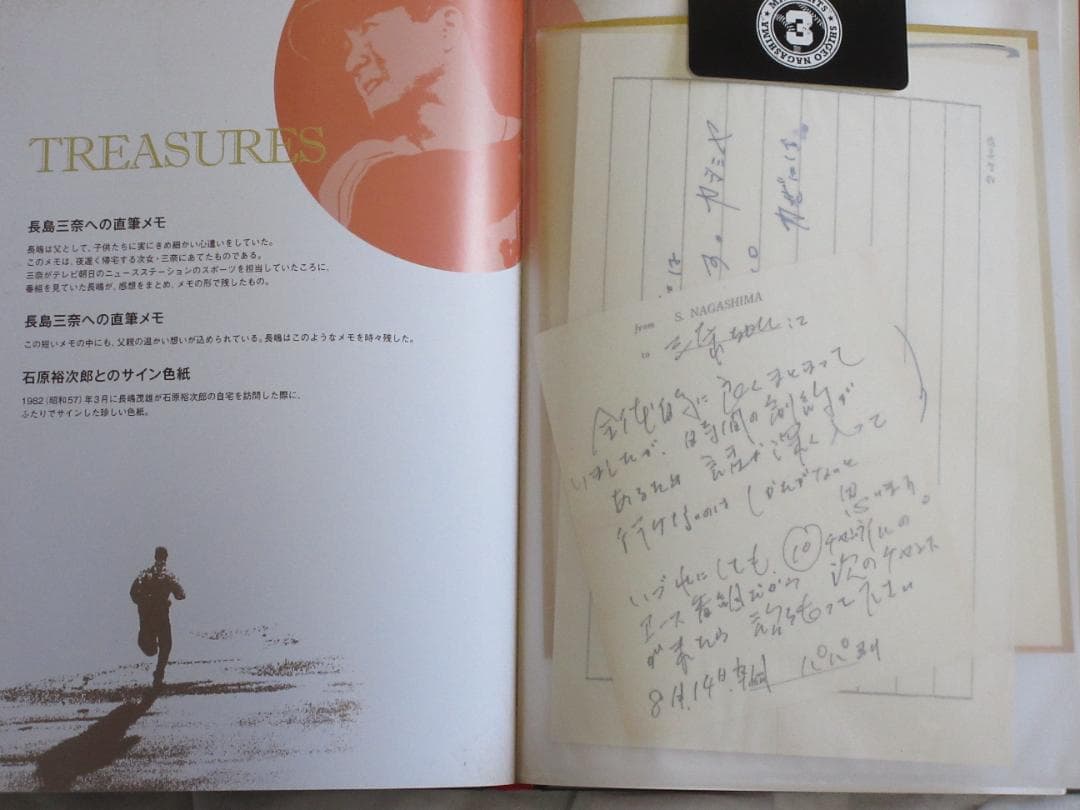 TREASURES
長島三奈への直筆メモ
長嶋は父として、子供たちに実にきめ細かい心遣いをしていた。
このメモは、夜遅く帰宅する次女・三奈にあてたものである。
三奈がテレビ朝日のニュースステーションのスポーツを担当していたころに、
番組を見ていた長嶋が、感想をまとめ、メモの形で残したもの。
長島三奈への直筆メモ
この短いメモの中にも、父親の温かい想いが込められている。長嶋はこのようなメモを時々残した。
石原裕次郎とのサイン色紙
1982(昭和57)年3月に長嶋茂雄が石原裕次郎の自宅を訪問した際に、
ふたりでサインした珍しい色紙。
3
SHIGEO NAGASHIMA
from S. NAGASHIMA
to
全体的に良くまとまって
いましたが、時間の制約が
あるため 深く入って
行けないのは しかたがないと
思います。
いづれにしても、⑩チャンネルの
エース番組だから 次のチャンス
が来たら 下さい
8月14日 パパより